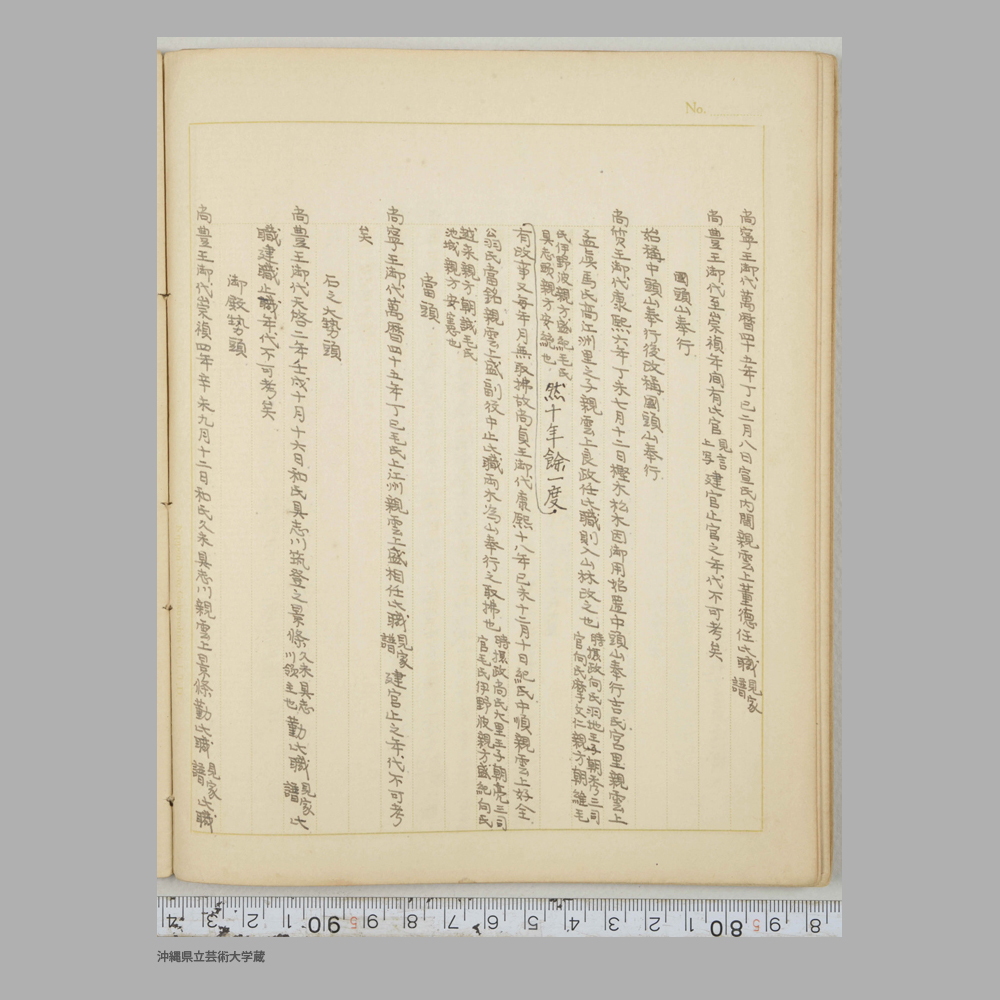 No.
尚寧王御代萬暦四十五年丁巳二月八日宣氏内間親雲上董徳任此職見家譜
尚豊王御代至崇禎年間有此官見言上写建官止官之年代不可考矣
國頭山奉行
始稱中頭山奉行後改稱國頭山奉行
尚質王御代康熙六年丁未七月十二日樫木松木因御用格置中頭山奉行吉氏宮里親雲上
孟虞馬氏 江洲里之子親雲上良政任此職則入山林改之也時摂政向氏羽地王子朝秀三司官向氏摩文仁親方朝維毛
氏伊野波親方盛紀毛氏具志頭親方安統也然十年餘一度
有改事又毎年月無取拂故尚貞王御代康熙十八年己未十二月十日紀氏中慎親雲上好全
翁氏當銘親雲上盛副役中止此職両水為山奉行之取拂也時摂政尚氏大里王子朝亮三司官毛氏伊野波親方盛紀向氏
越来親方朝誠毛氏池城親方安憲也
當頭
尚寧王御代萬暦四十五年丁巳毛氏上江州親雲上盛相任此職見家譜建官止之年代不可考
矣
石之大勢頭
尚豊王御代天啓二年壬戌十月十六日和氏具志川筑登之景條久米具志川領主也勤此職見家譜此
職建職止職年代不可考矣
御殿勢頭
尚豊王御代崇禎四年辛未九月十二日和氏久米具志川親雲上景條勤此職見家譜此職
4 3 2 1 90 9 8 7 6 5 4 3 2 1 80 9 8
沖縄県立芸術大学蔵